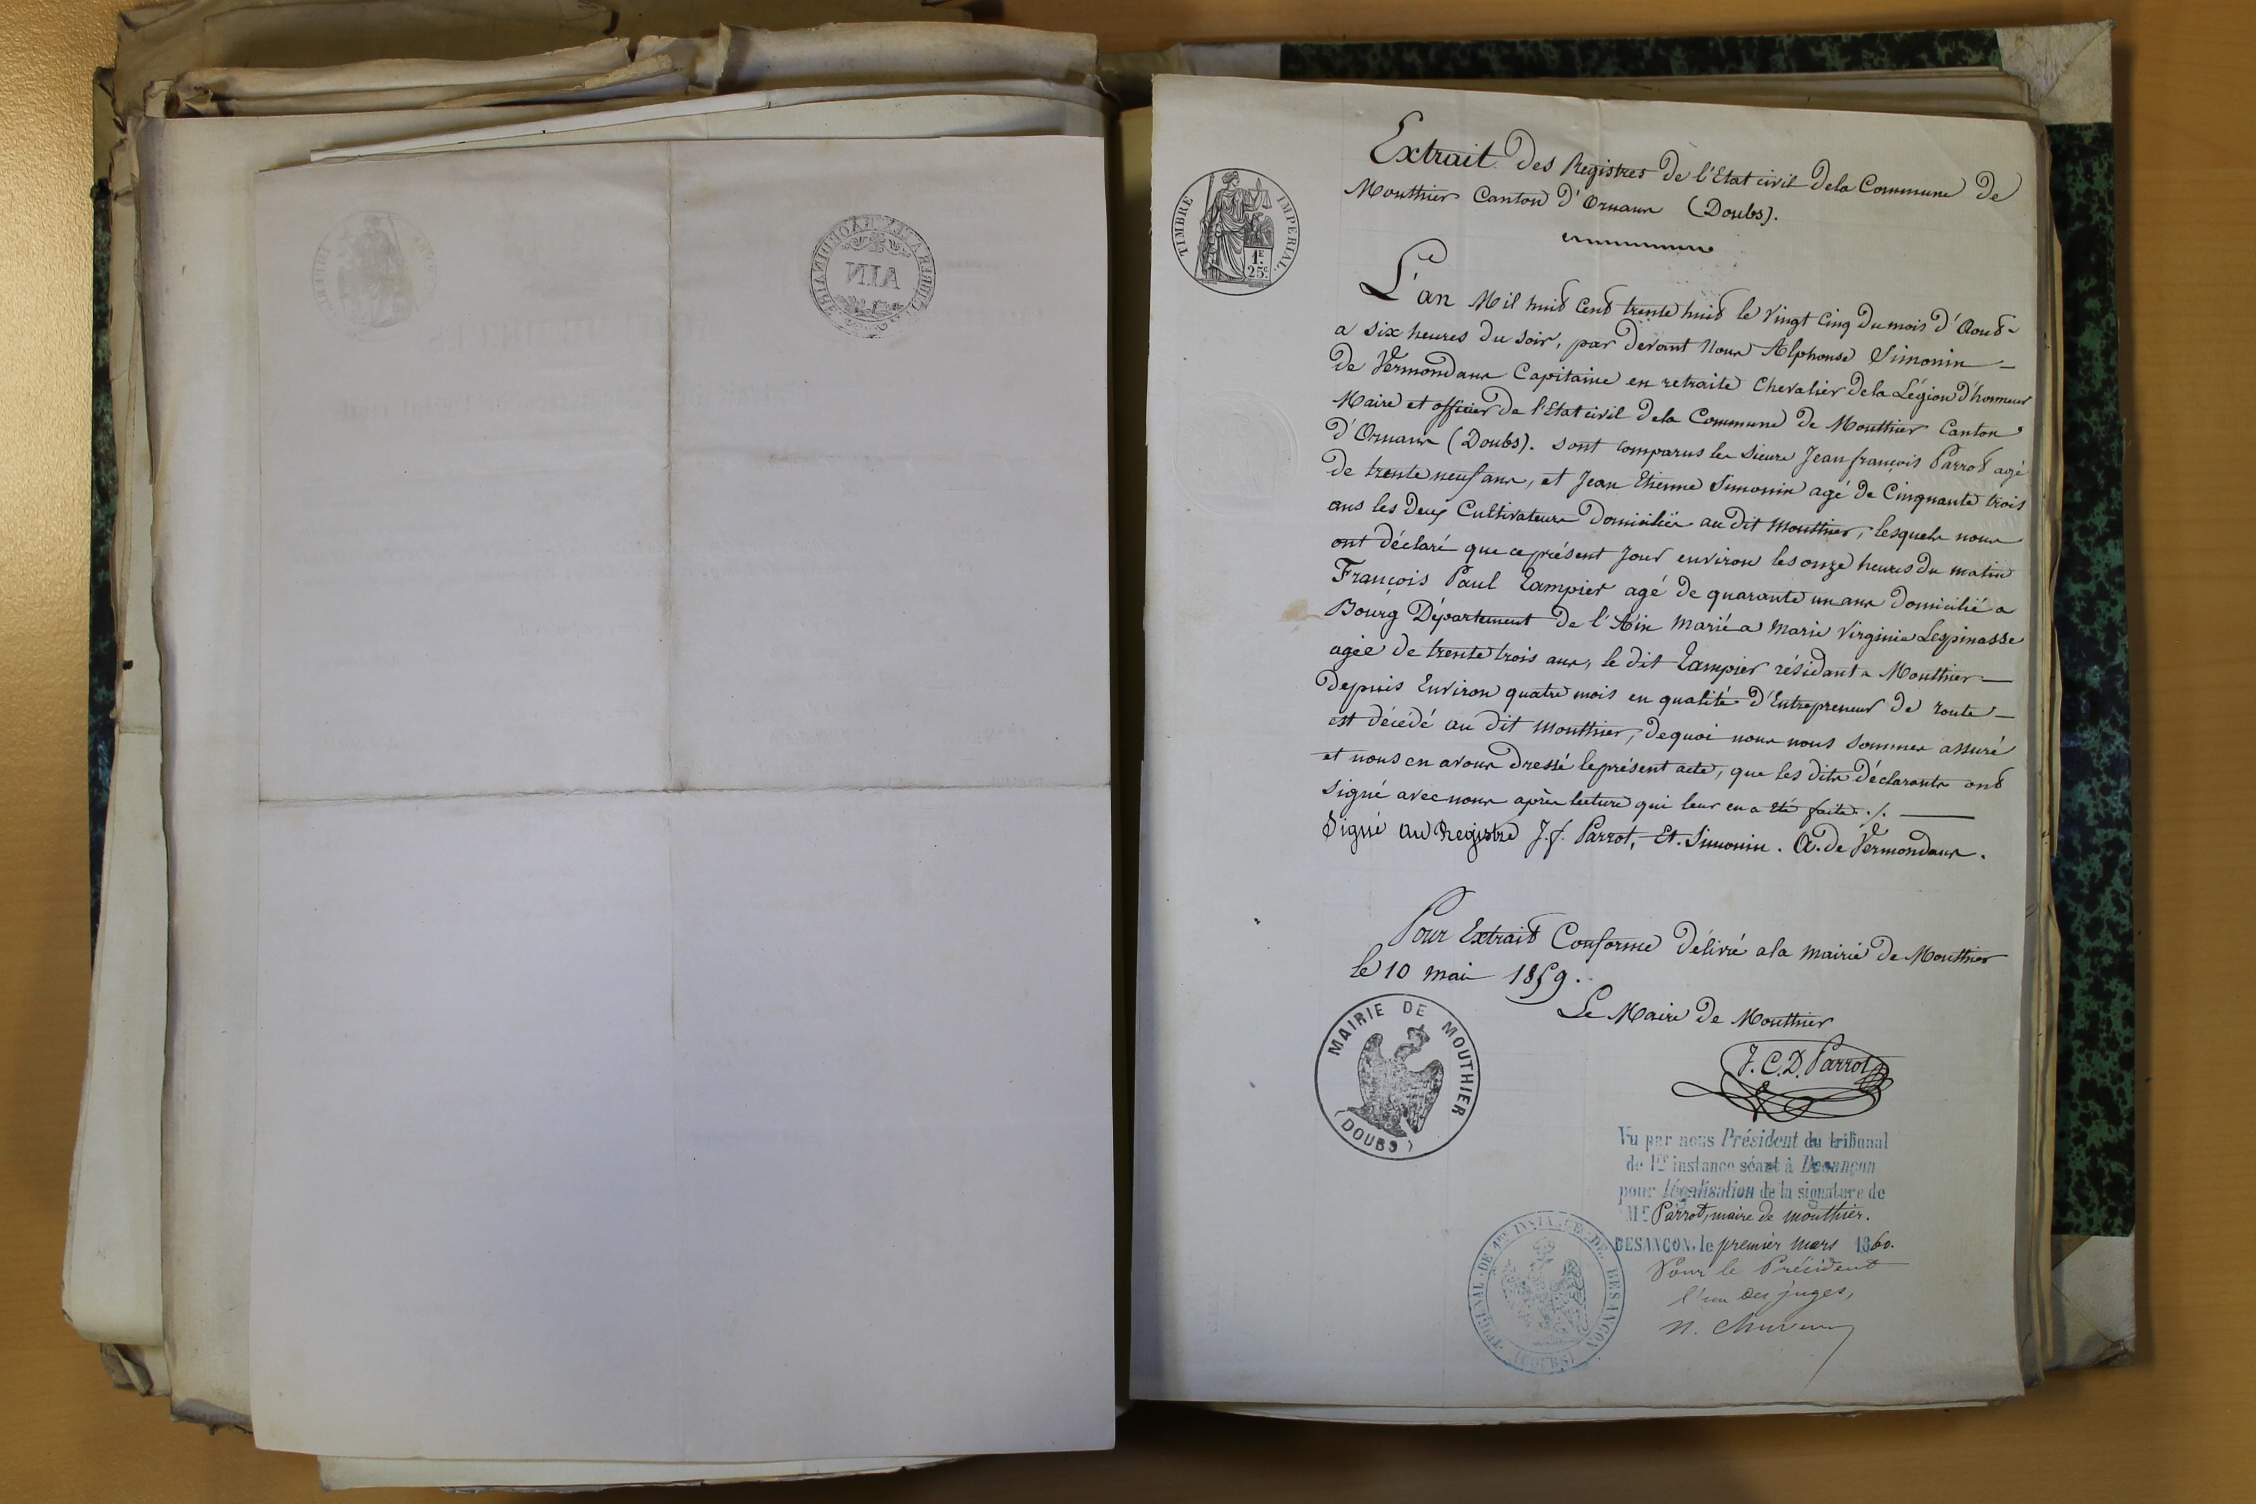 AIN
Extrait des Registres de l'Etat civil dela Commune de
Mouthier Canton d'Ornans (Doubs).
TIMBRE IMPERIAL.
1F.
25c.
L'an Mil huit Cent trente huit le Vingt Cinq du mois d'Aout
a six heures du soir, par devant Nous Alphonse Simonin
de Vermondans Capitaine en retraite Chevalier dela Légion d'honneur
Maire et officier de l'Etat civil dela Commune de Mouthier Canton
d'Ornans (Doubs). sont comparus les sieurs Jean françois Parrot agé
de trente neuf ans, et Jean Etienne Simonin agé de Cinquante trois
ans les deux Cultivateurs domiciliés au dit Mouthier, lesquels nous
ont déclaré que ce présent Jour environ les onze heures du matin
François Paul Tampier agé de quarante un ans domicilié a
Bourg Département de l'Ain Marié a Marie Virginie Lespinasse
agée de trente trois ans, le dit Tampier résidant a Mouthier
Depuis Environ quatre mois en qualité d'Entrepreneur de route
est décédé au dit Mouthier, dequoi nous nous sommes assuré
et nous en avons dressé le présent acte, que les dits déclarants ont
signé avec nous après lecture qui leur en a été faite ./.
Signé au Registre J.f. Parrot, Et. Simonin. A. de Vermondans.
Pour Extrait Conforme délivré a la mairie de Mouthier
le 10 mai 1859.
Le Maire de Mouthier
MAIRIE DE MOUTHIER
(DOUBS)
J. C. D. Parrot
Vu par nous Président du tribunal
de 1re instance séant à Besançon
pour légalisation de la signature de
Mr Parrot, maire de mouthier.
BESANÇON, le premier mars 1860.
Pour le Président
l'un des juges,
TRIBUNAL DE 1re INSTANCE DE BESANÇON
(DOUBS)